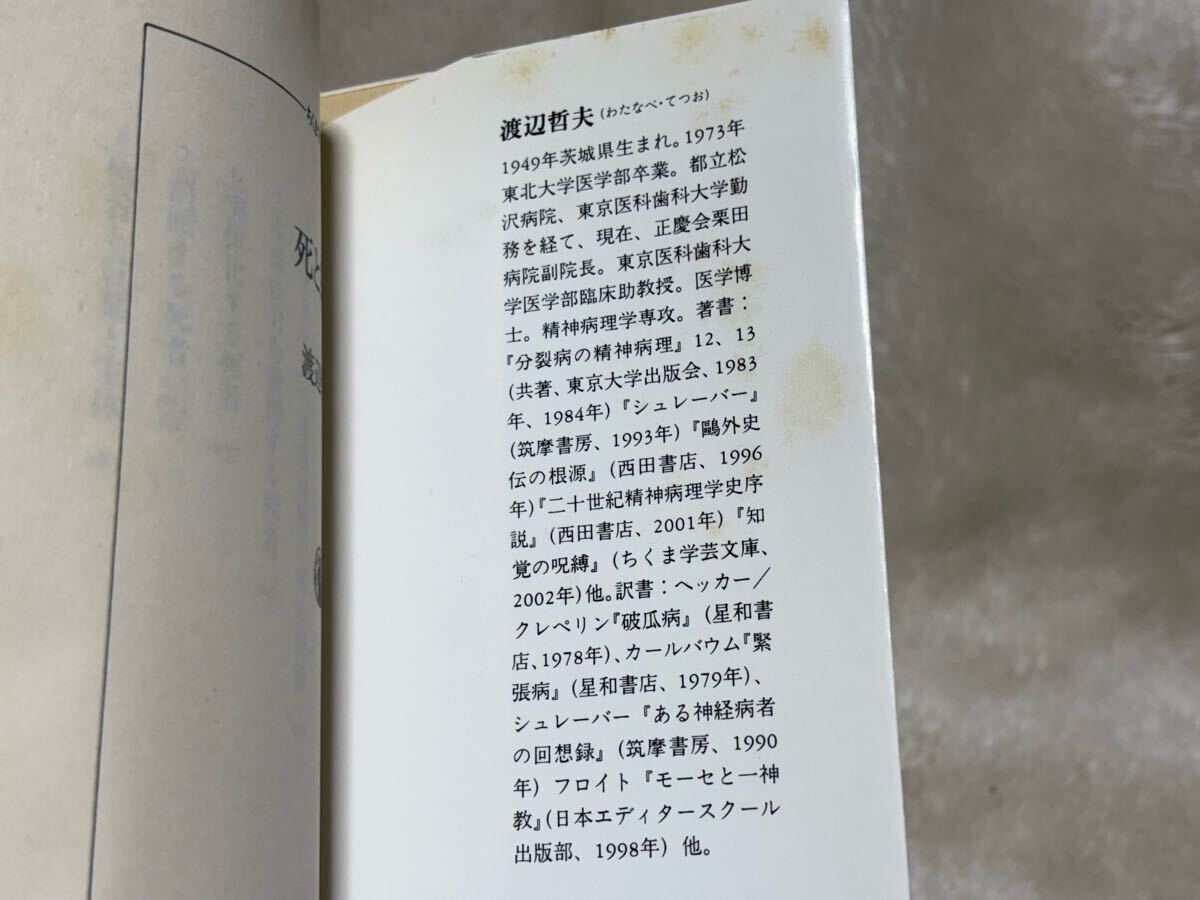 死と
渡辺
渡辺哲夫(わたなべ・てつお)
1949年茨城県生まれ。1973年
東北大学医学部卒業。都立松
沢病院、東京医科歯科大学勤
務を経て、現在、正慶会栗田
病院副院長。東京医科歯科大
学医学部臨床助教授。医学博
士。精神病理学専攻。著書：
『分裂病の精神病理』12、13
(共著、東京大学出版会、1983
年、1984年)『シュレーバー』
(筑摩書房、1993年)『鷗外史
伝の根源』(西田書店、1996
年)『二十世紀精神病理学史序
説』(西田書店、2001年)『知
覚の呪縛』(ちくま学芸文庫、
2002年)他。訳書：ヘッカー／
クレペリン『破瓜病』(星和書
店、1978年)、カールバウム『緊
張病』(星和書店、1979年)、
シュレーバー『ある神経病者
の回想録』(筑摩書房、1990
年) フロイト『モーセと一神
教』(日本エディタースクール
出版部、1998年) 他。